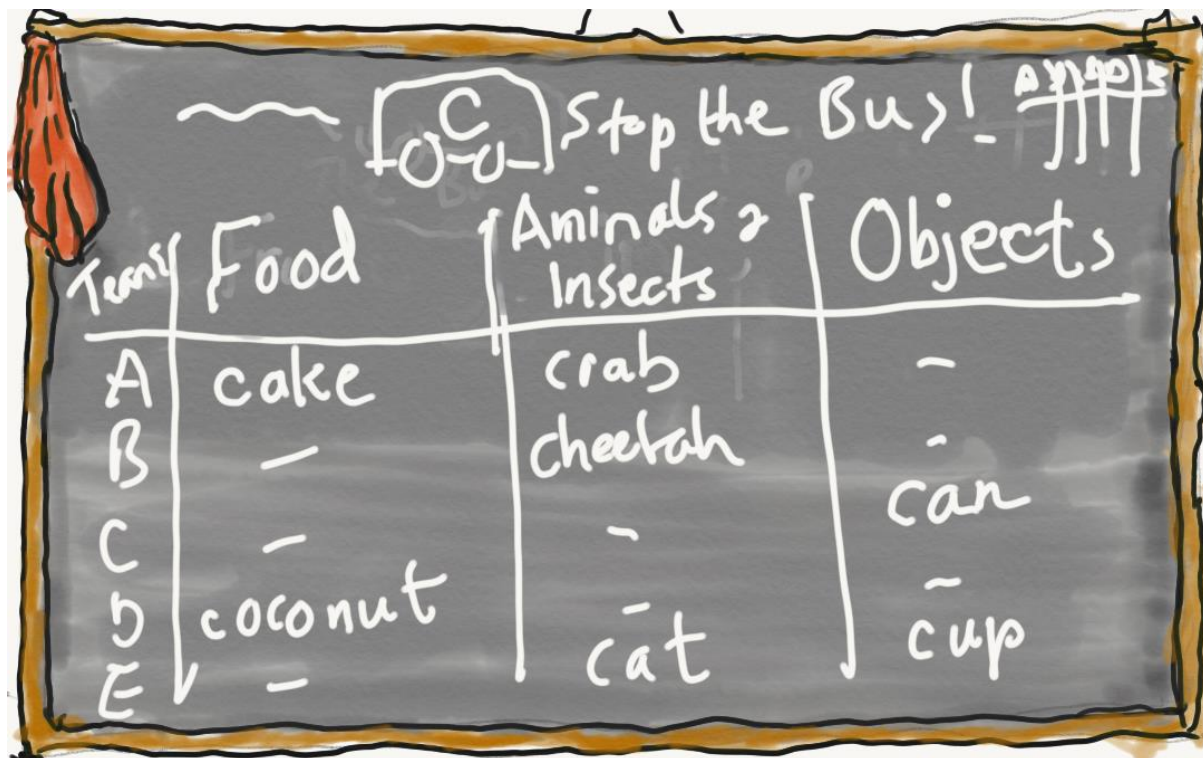 C Stop the Bus!
A B C D E
Teams Food Aminals & Insects Objects
A cake crab -
B - cheetah -
C - - can
D coconut - -
E - cat cup